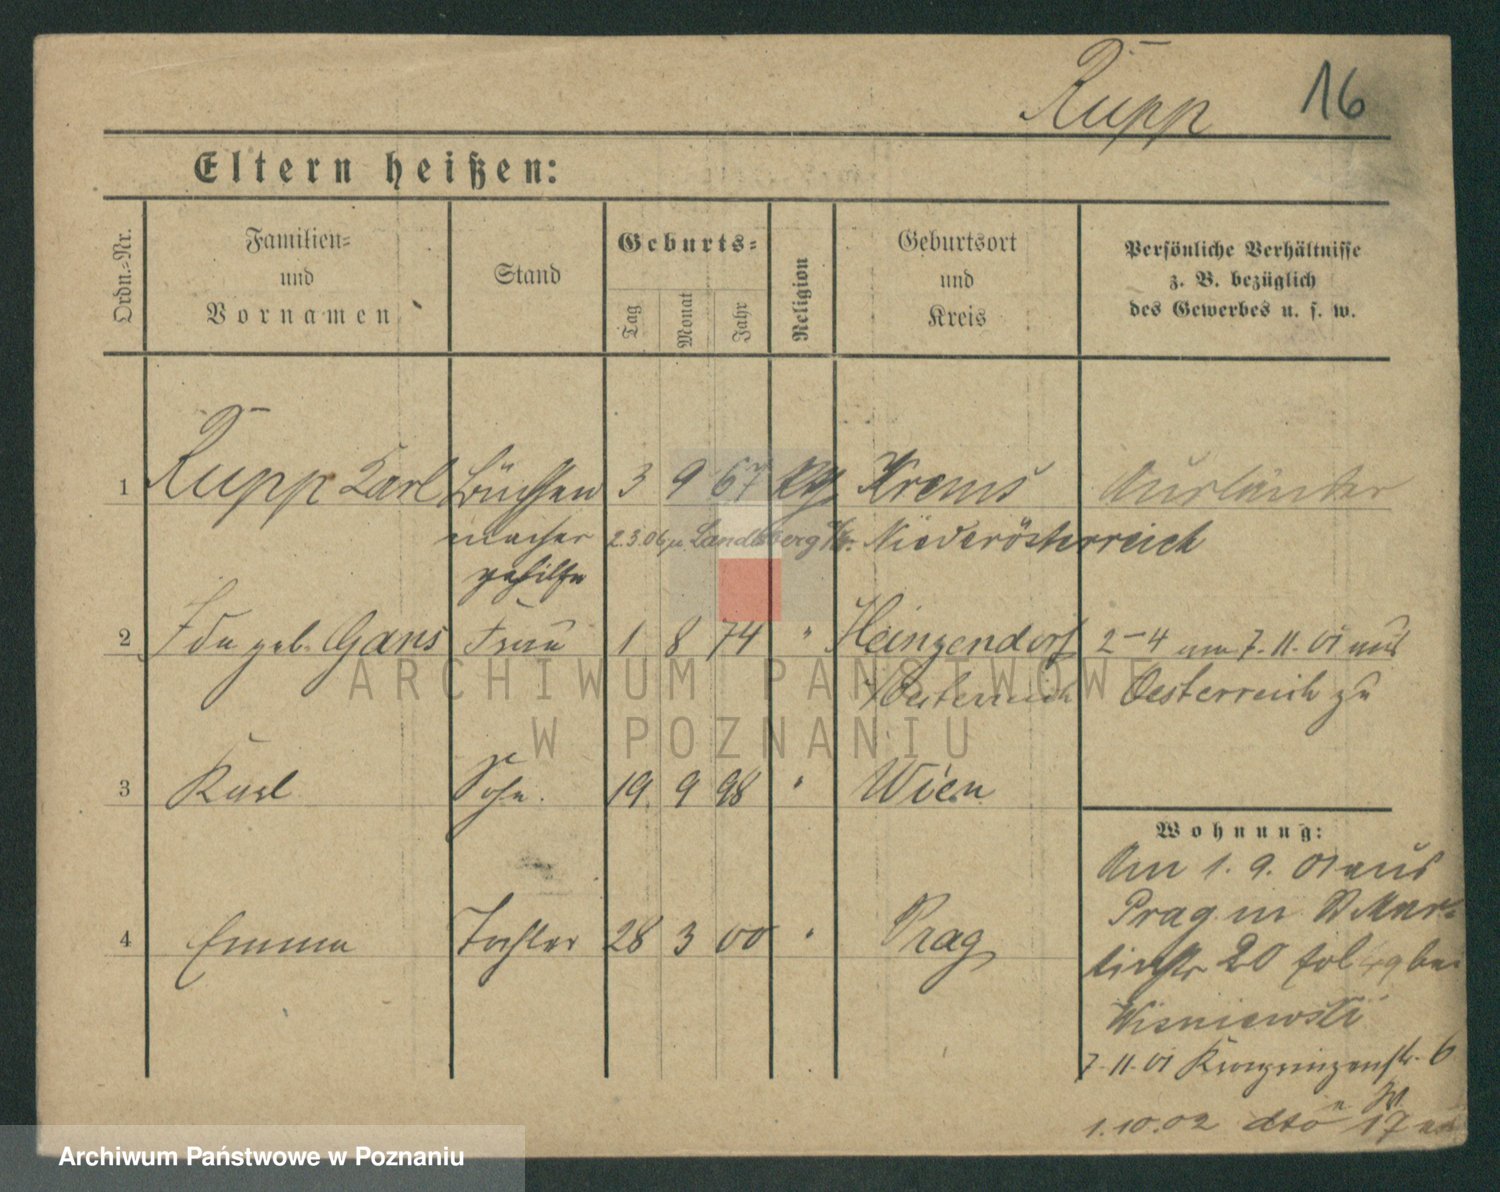 Rupp 16
Eltern heißen:
Ordn.-Nr.
Familien-
und
Vornamen
Stand
Geburts-
Tag
Monat
Jahr
Religion
Geburtsort
und
Kreis
Persönliche Verhältnisse
z. B. bezüglich
des Gewerbes u. s. w.
1 Rupp Karl Büchsen 3 9 67 Krems Ausländer
macher 2.3.06 Landsberg Niederösterreich
gehilfe
2 Ida geb. Gans Frau 1 8 74 " Heinzendorf 2-4 am 7.11.01 aus
Oesterreich Oesterreich zu
ARCHIWUM PAŃSTWOWE
W POZNANIU
3 Karl Sohn. 19. 9 98 " Wien
Wohnung:
Am 1.9.01 aus
Prag in
4 Emma Tochter 28 3 00 " Prag
20 bei
Wisniewski
7.11.01 Kronprinzenstr. 6
1.10.02 dto 17
Archiwum Państwowe w Poznaniu